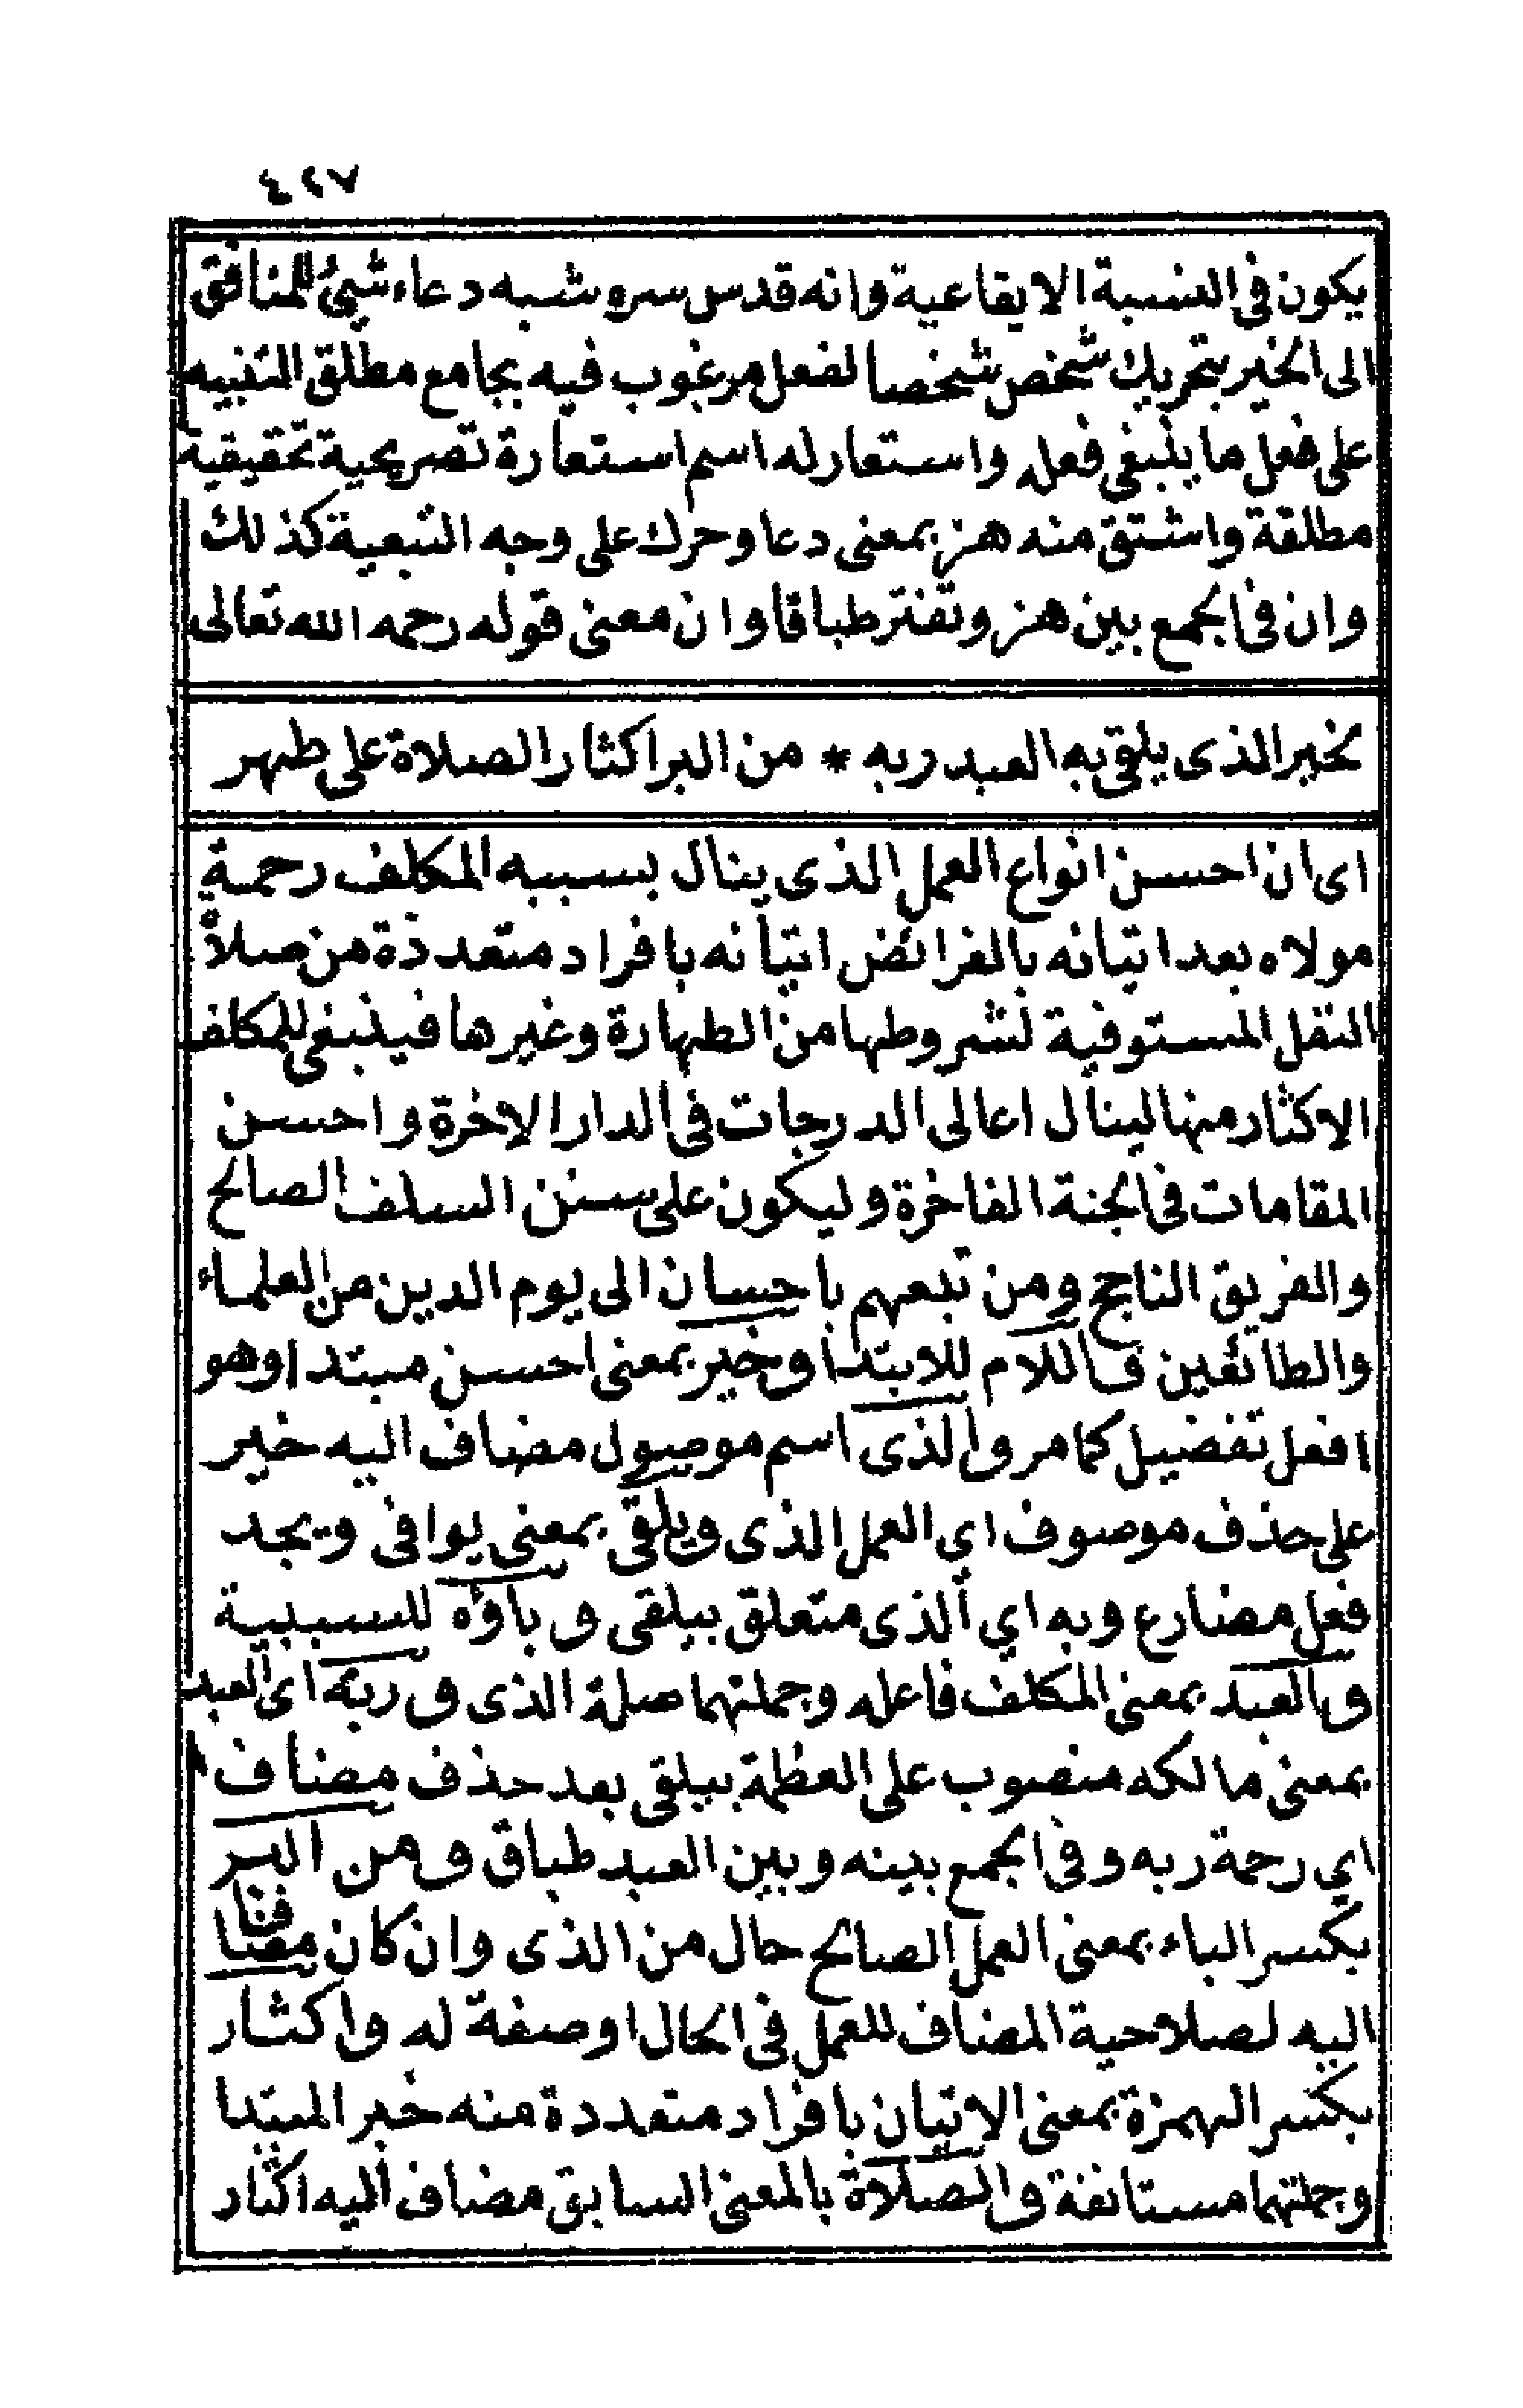 ٤٢٧
يكون في النسبة الايقاعية وانه قدس سره شبه دعاء شيئ للمنافق
الى الخير بتحريك شخص شخصا لفعل مرغوب فيه بجامع مطلق التنبيه
على فعل ما ينبغي فعله واستعار له اسم استعارة تصريحية تحقيقية
مطلقة واشتق منه هز بمعنى دعا وحرك على وجه التبعية كذلك
وان في الجمع بين هز وتفتر طباقا وان معنى قوله رحمه الله تعالى
لخير الذى يلقى به العبد ربه * من البر اكثار الصلاة على طهر
اى ان احسن انواع العمل الذى ينال بسببه المكلف رحمة
مولاه بعد اتيانه بالفرائض اتيانه بافراد متعددة من صلاة
النفل المستوفية لشروطها من الطهارة وغيرها فينبغي للمكلف
الاكثار منها لينال اعالى الدرجات في الدار الاخرة واحسن
المقامات في الجنة الفاخرة وليكون على سنن السلف الصالح
والفريق الناجح ومن تبعهم باحسان الى يوم الدين من العلماء
والطائفين فاللام للابتدا وخير بمعنى احسن مبتدا وهو
افعل تفضيل كما مر والذى اسم موصول مضاف اليه خير
على حذف موصوف اي العمل الذى ويلقى بمعنى يوافى ويجد
فعل مضارع وبه اي الذى متعلق بيلقى وباؤه للسببية
والعبد بمعنى المكلف فاعله وجملتهما صلة الذى وربه اى العبد
بمعنى مالكه منصوب على العظمة بيلقى بعد حذف مضاف
اي رحمة ربه وفي الجمع بينه وبين العبد طباق ومن البر
بكسر الباء بمعنى العمل الصالح حال من الذى وان كان مضافا
اليه لصلاحية المضاف للعمل في الحال او صفة له واكثار
بكسر الهمزة بمعنى الاتيان بافراد متعددة منه خبر المبتدا
وجملتهما مستانفة والصلاة بالمعنى السابق مضاف اليه اكثار